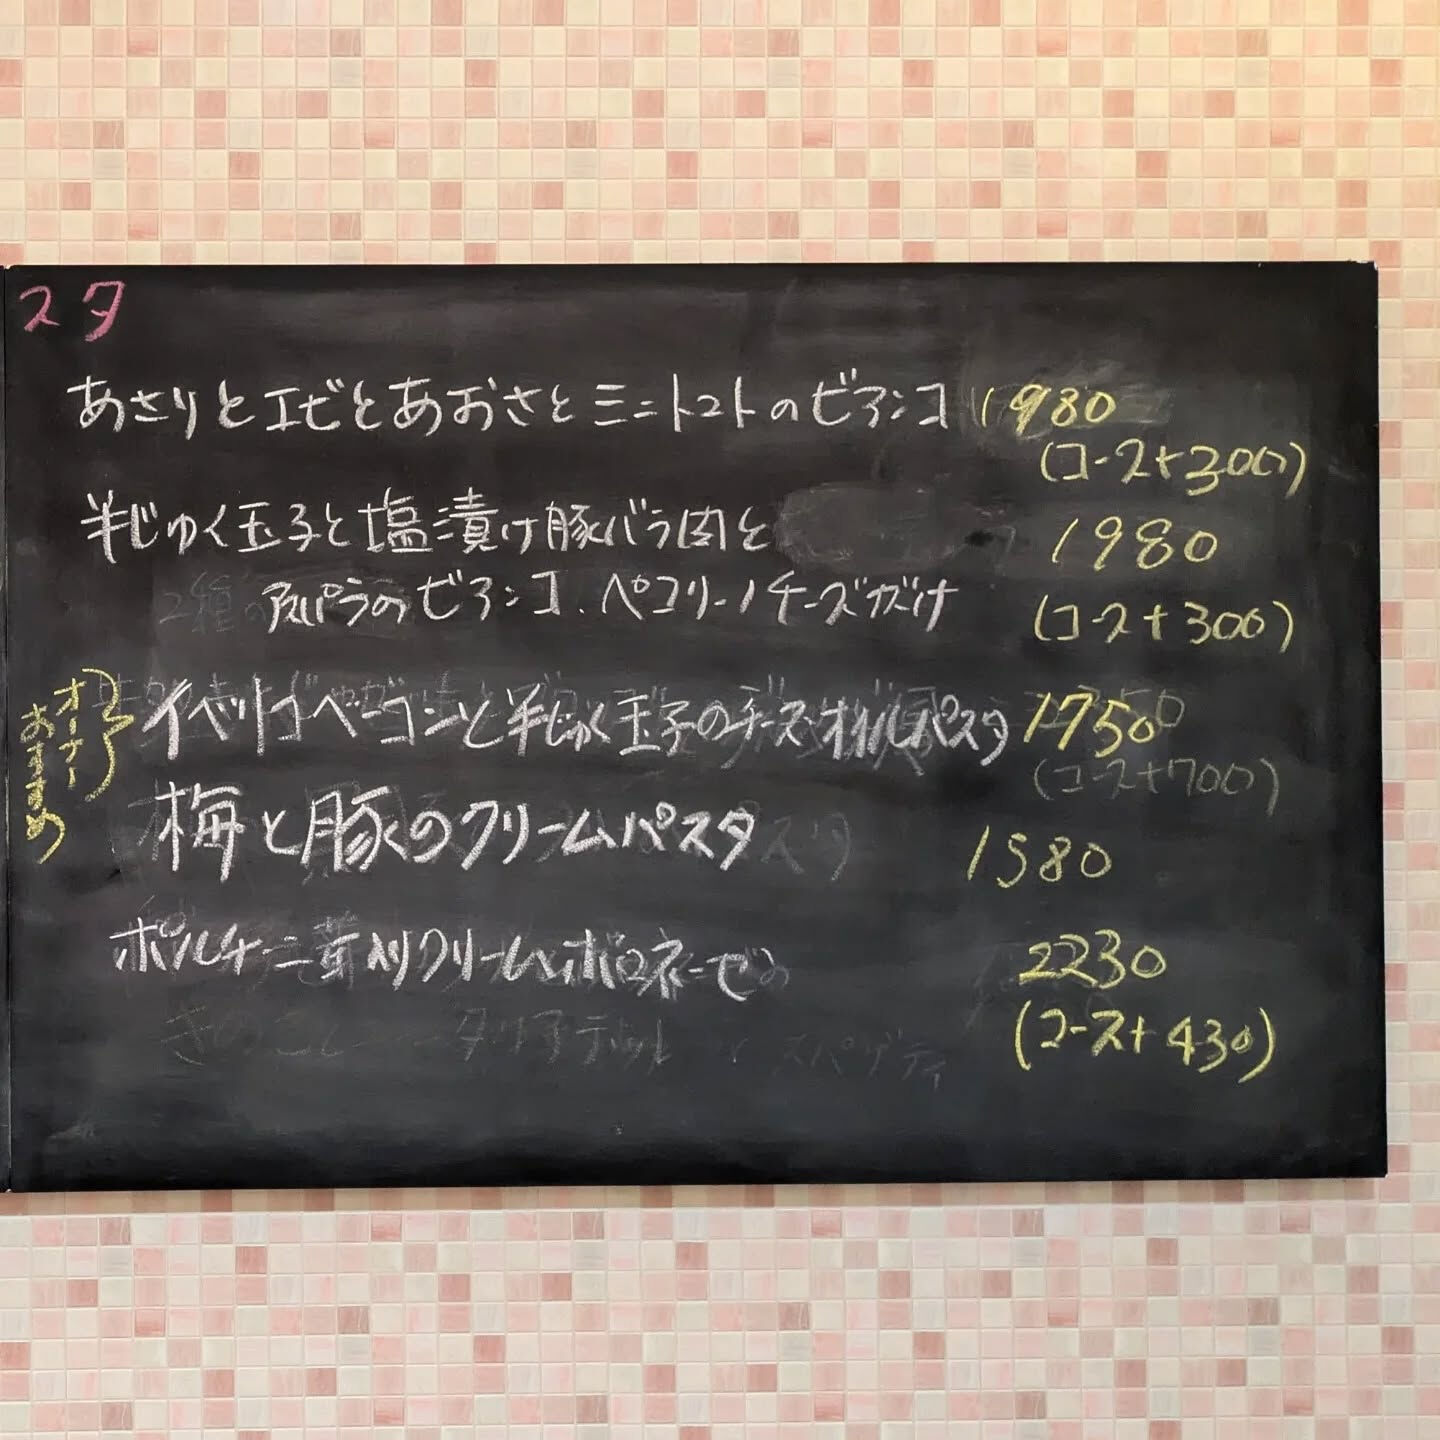 スタ
あさりとエビとあおさとミニトマトのビアンコ 1980
(コース+300)
半じゅく玉子と塩漬け豚バラ肉と 1980
アスパラのビアンコ、ペコリーノチーズがけ (コース+300)
オーナーおすすめ
イベリコベーコンと半じゅく玉子のチーズオイルパスタ 1750
(コース+700)
梅と豚のクリームパスタ 1580
ポルチーニ茸入りクリームボロネーゼ 2230
(コース+430)